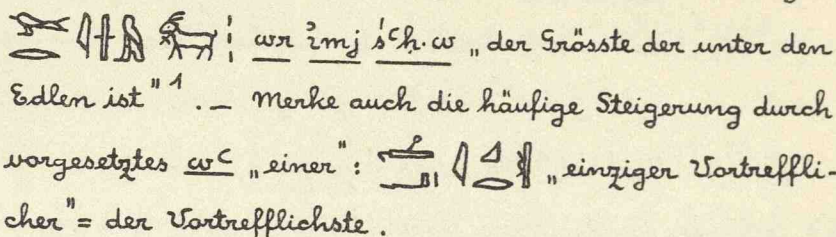 wr ꞽmj śꜥḥ.w „der Grösste der unter den
Edlen ist" ¹. — Merke auch die häufige Steigerung durch
vorgesetztes wꜥ „einer": „einziger Vortreffli-
cher" = der Vortrefflichste.